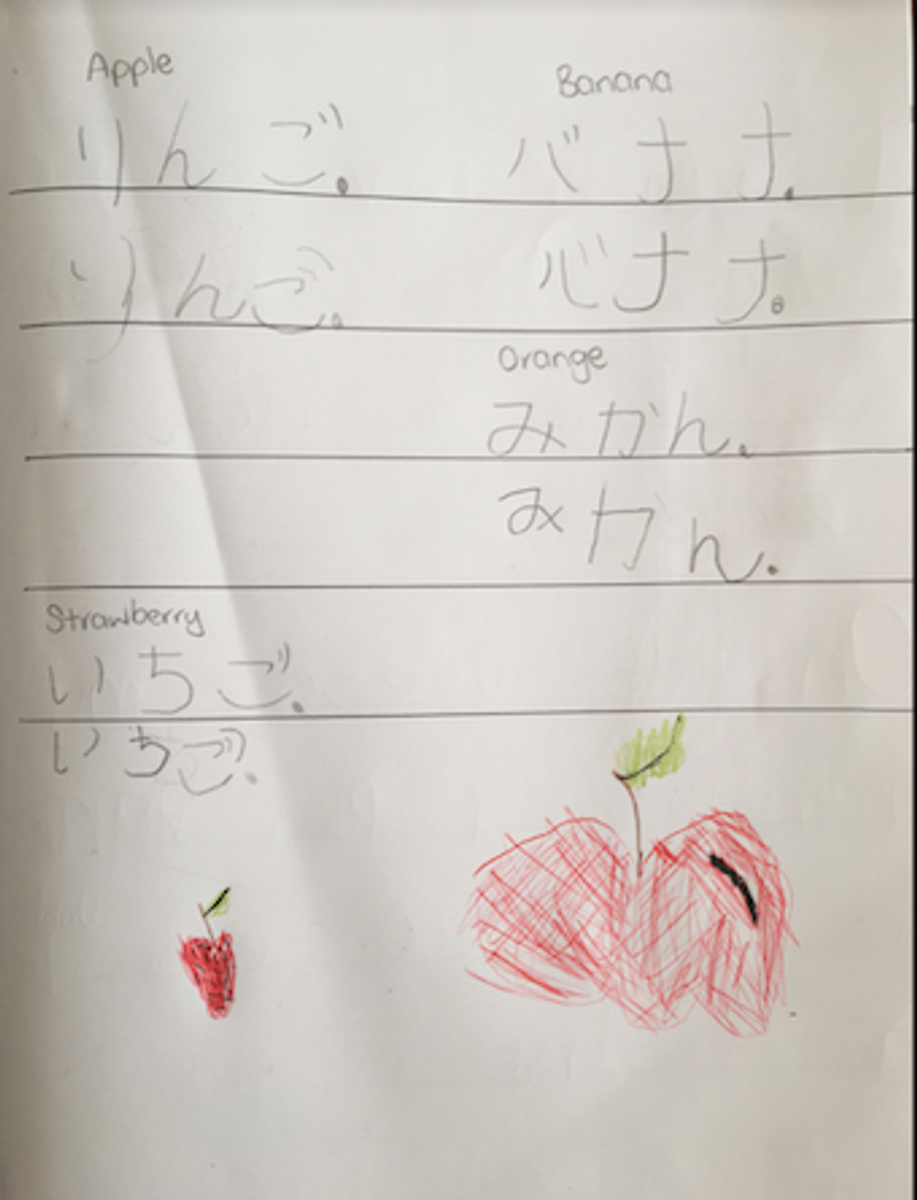 Apple Banana
りんご. バナナ.
りんご. バナナ。
Orange
みかん.
みかん.
Strawberry
いちご.
いちご.